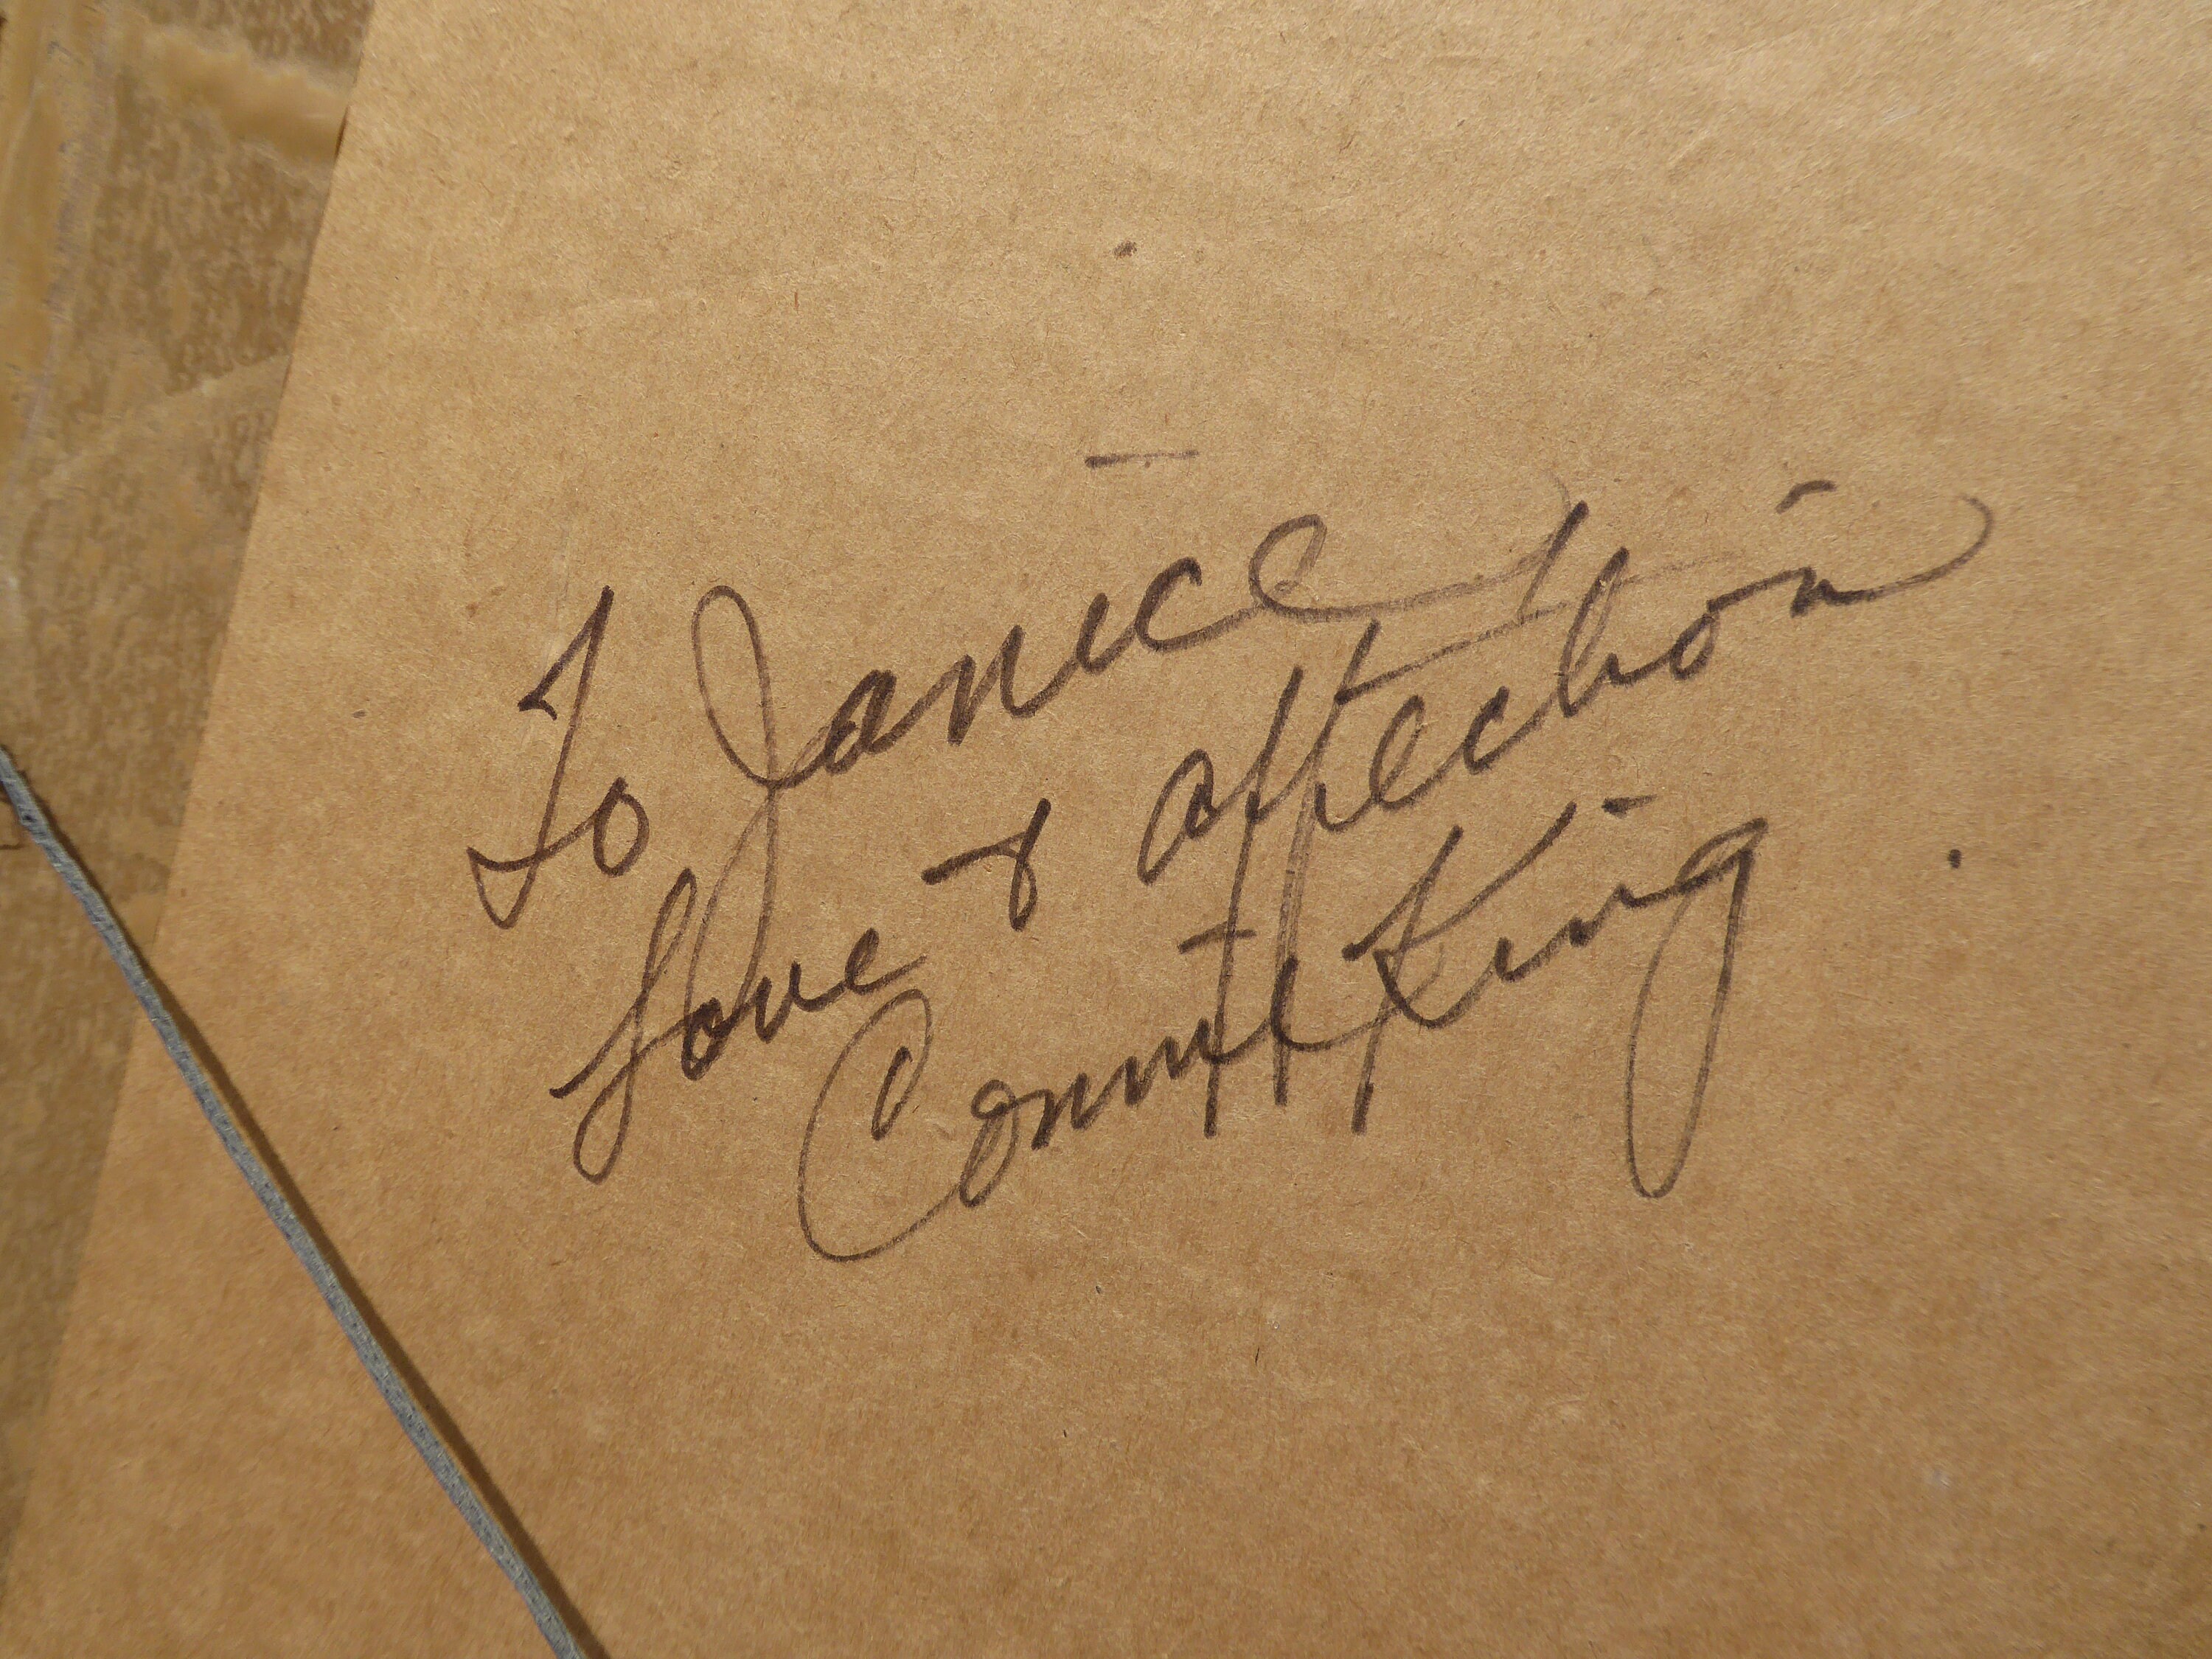 To Janice
love & affection
Connie King